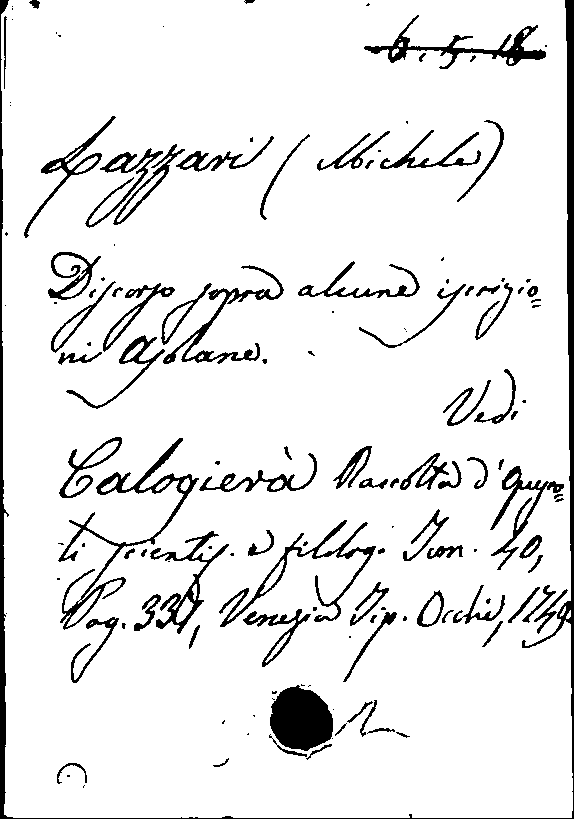 6.5.18
Lazzari (Michele)
Discorso sopra alcune iscrizio=
ni Asolane.
Vedi
Calogierà Raccolta d'Opuso=
li scientif. e filolog. Tom. 40,
Pag. 337, Venezia Tip. Occhi, 1749